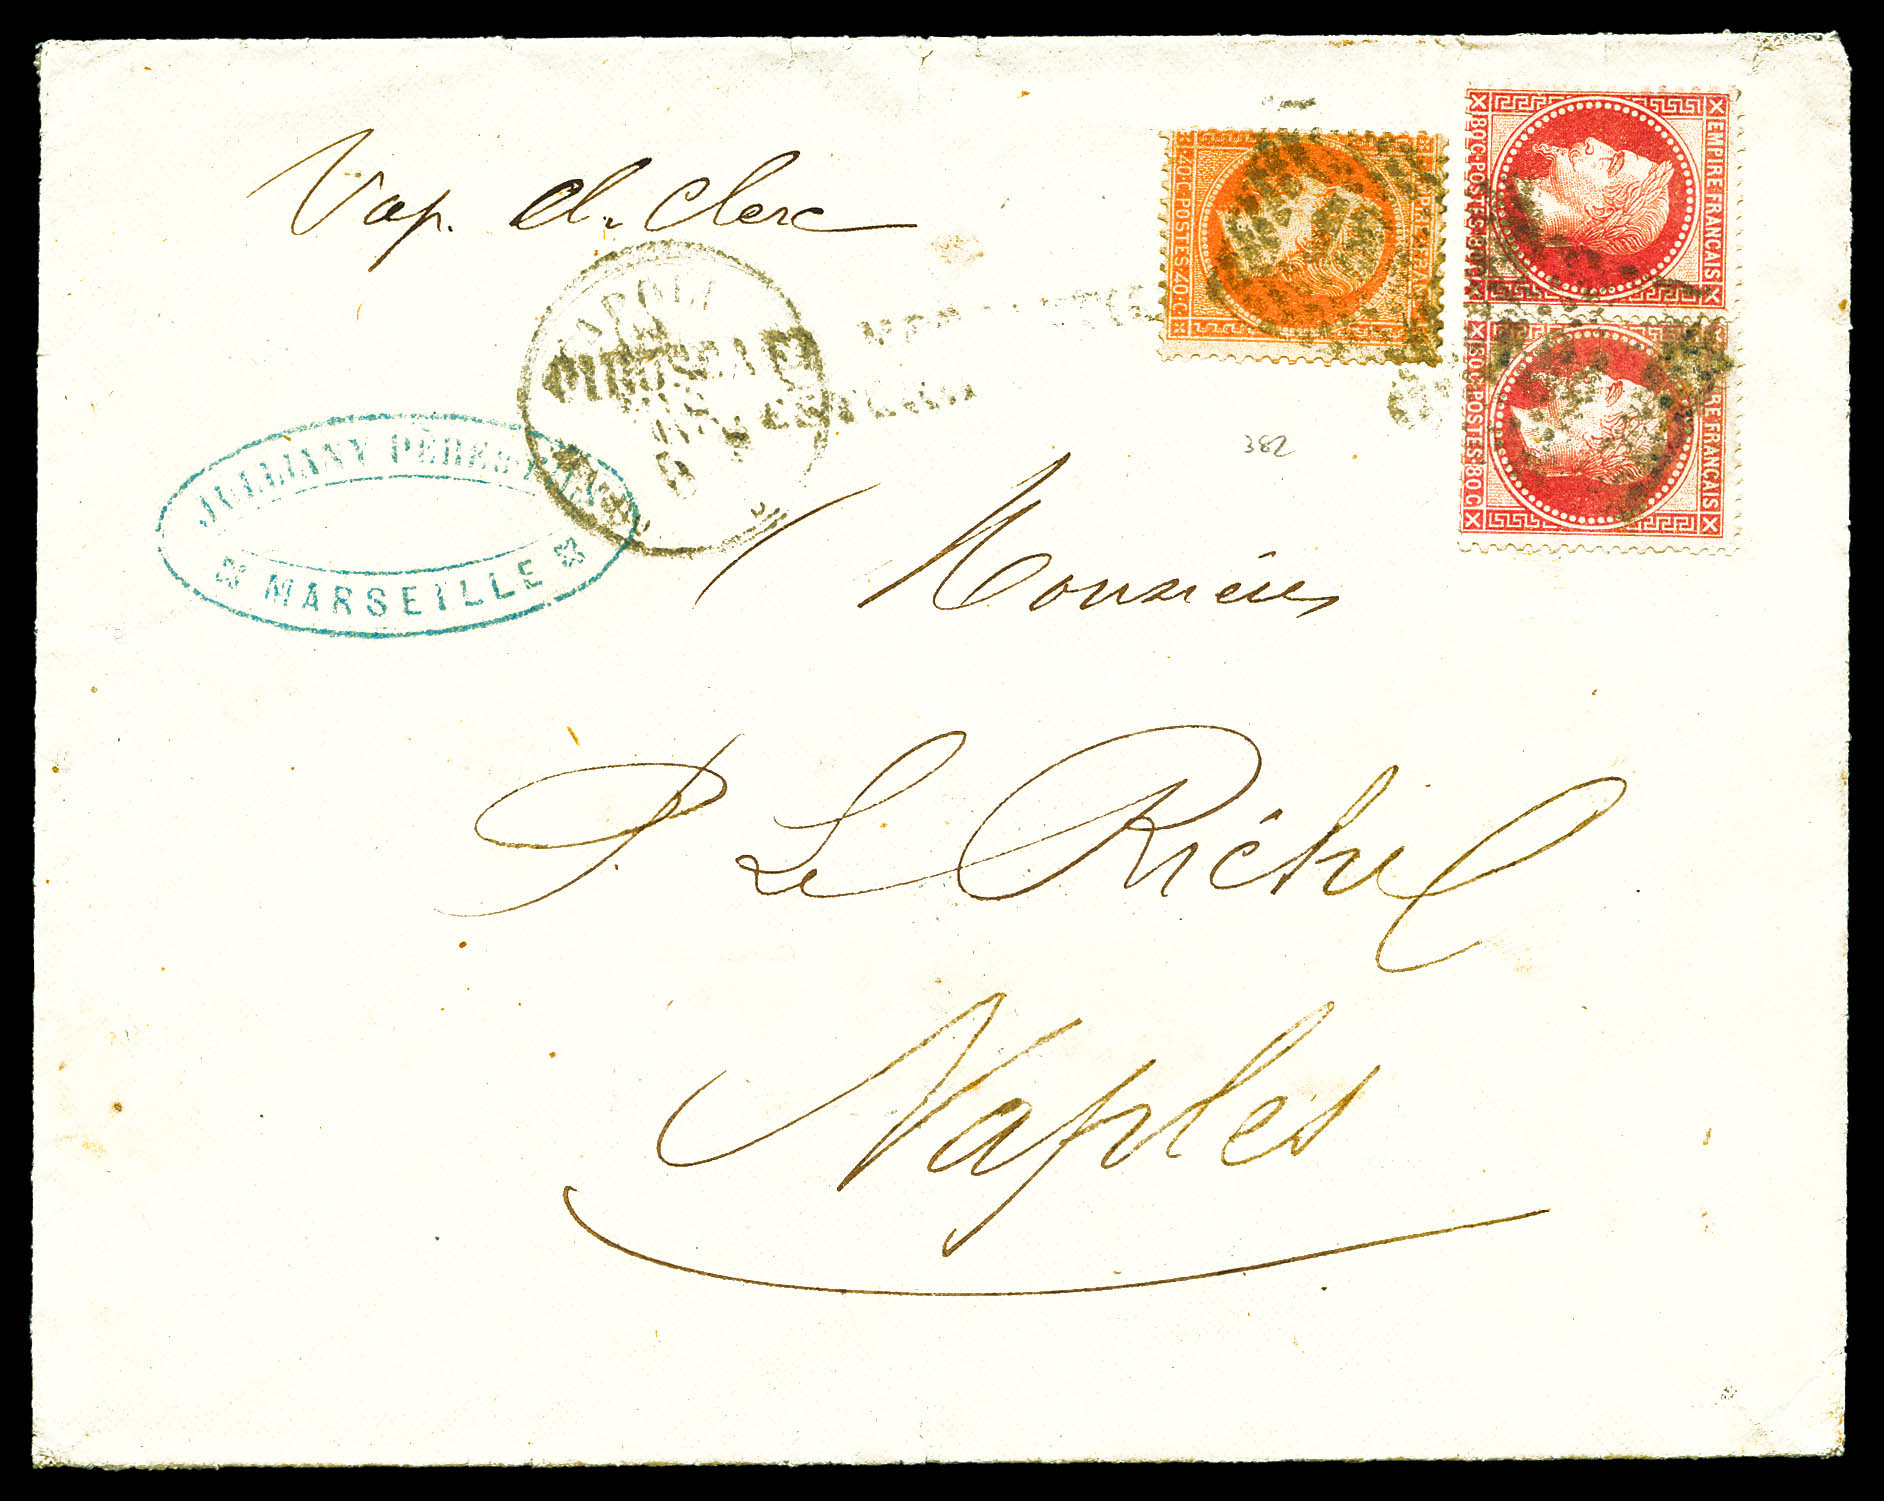 Vap. Cl. Clerc
40.C.POSTES.40.C
80.C.POSTES.80.C
EMPIRE FRANCAIS
80.C.POSTES.80.C
EMPIRE FRANCAIS
NAPOLI
PIROSCAFI
JULLIANY PÈRE
MARSEILLE
382
Monsieur
P. Le Riche
Naples